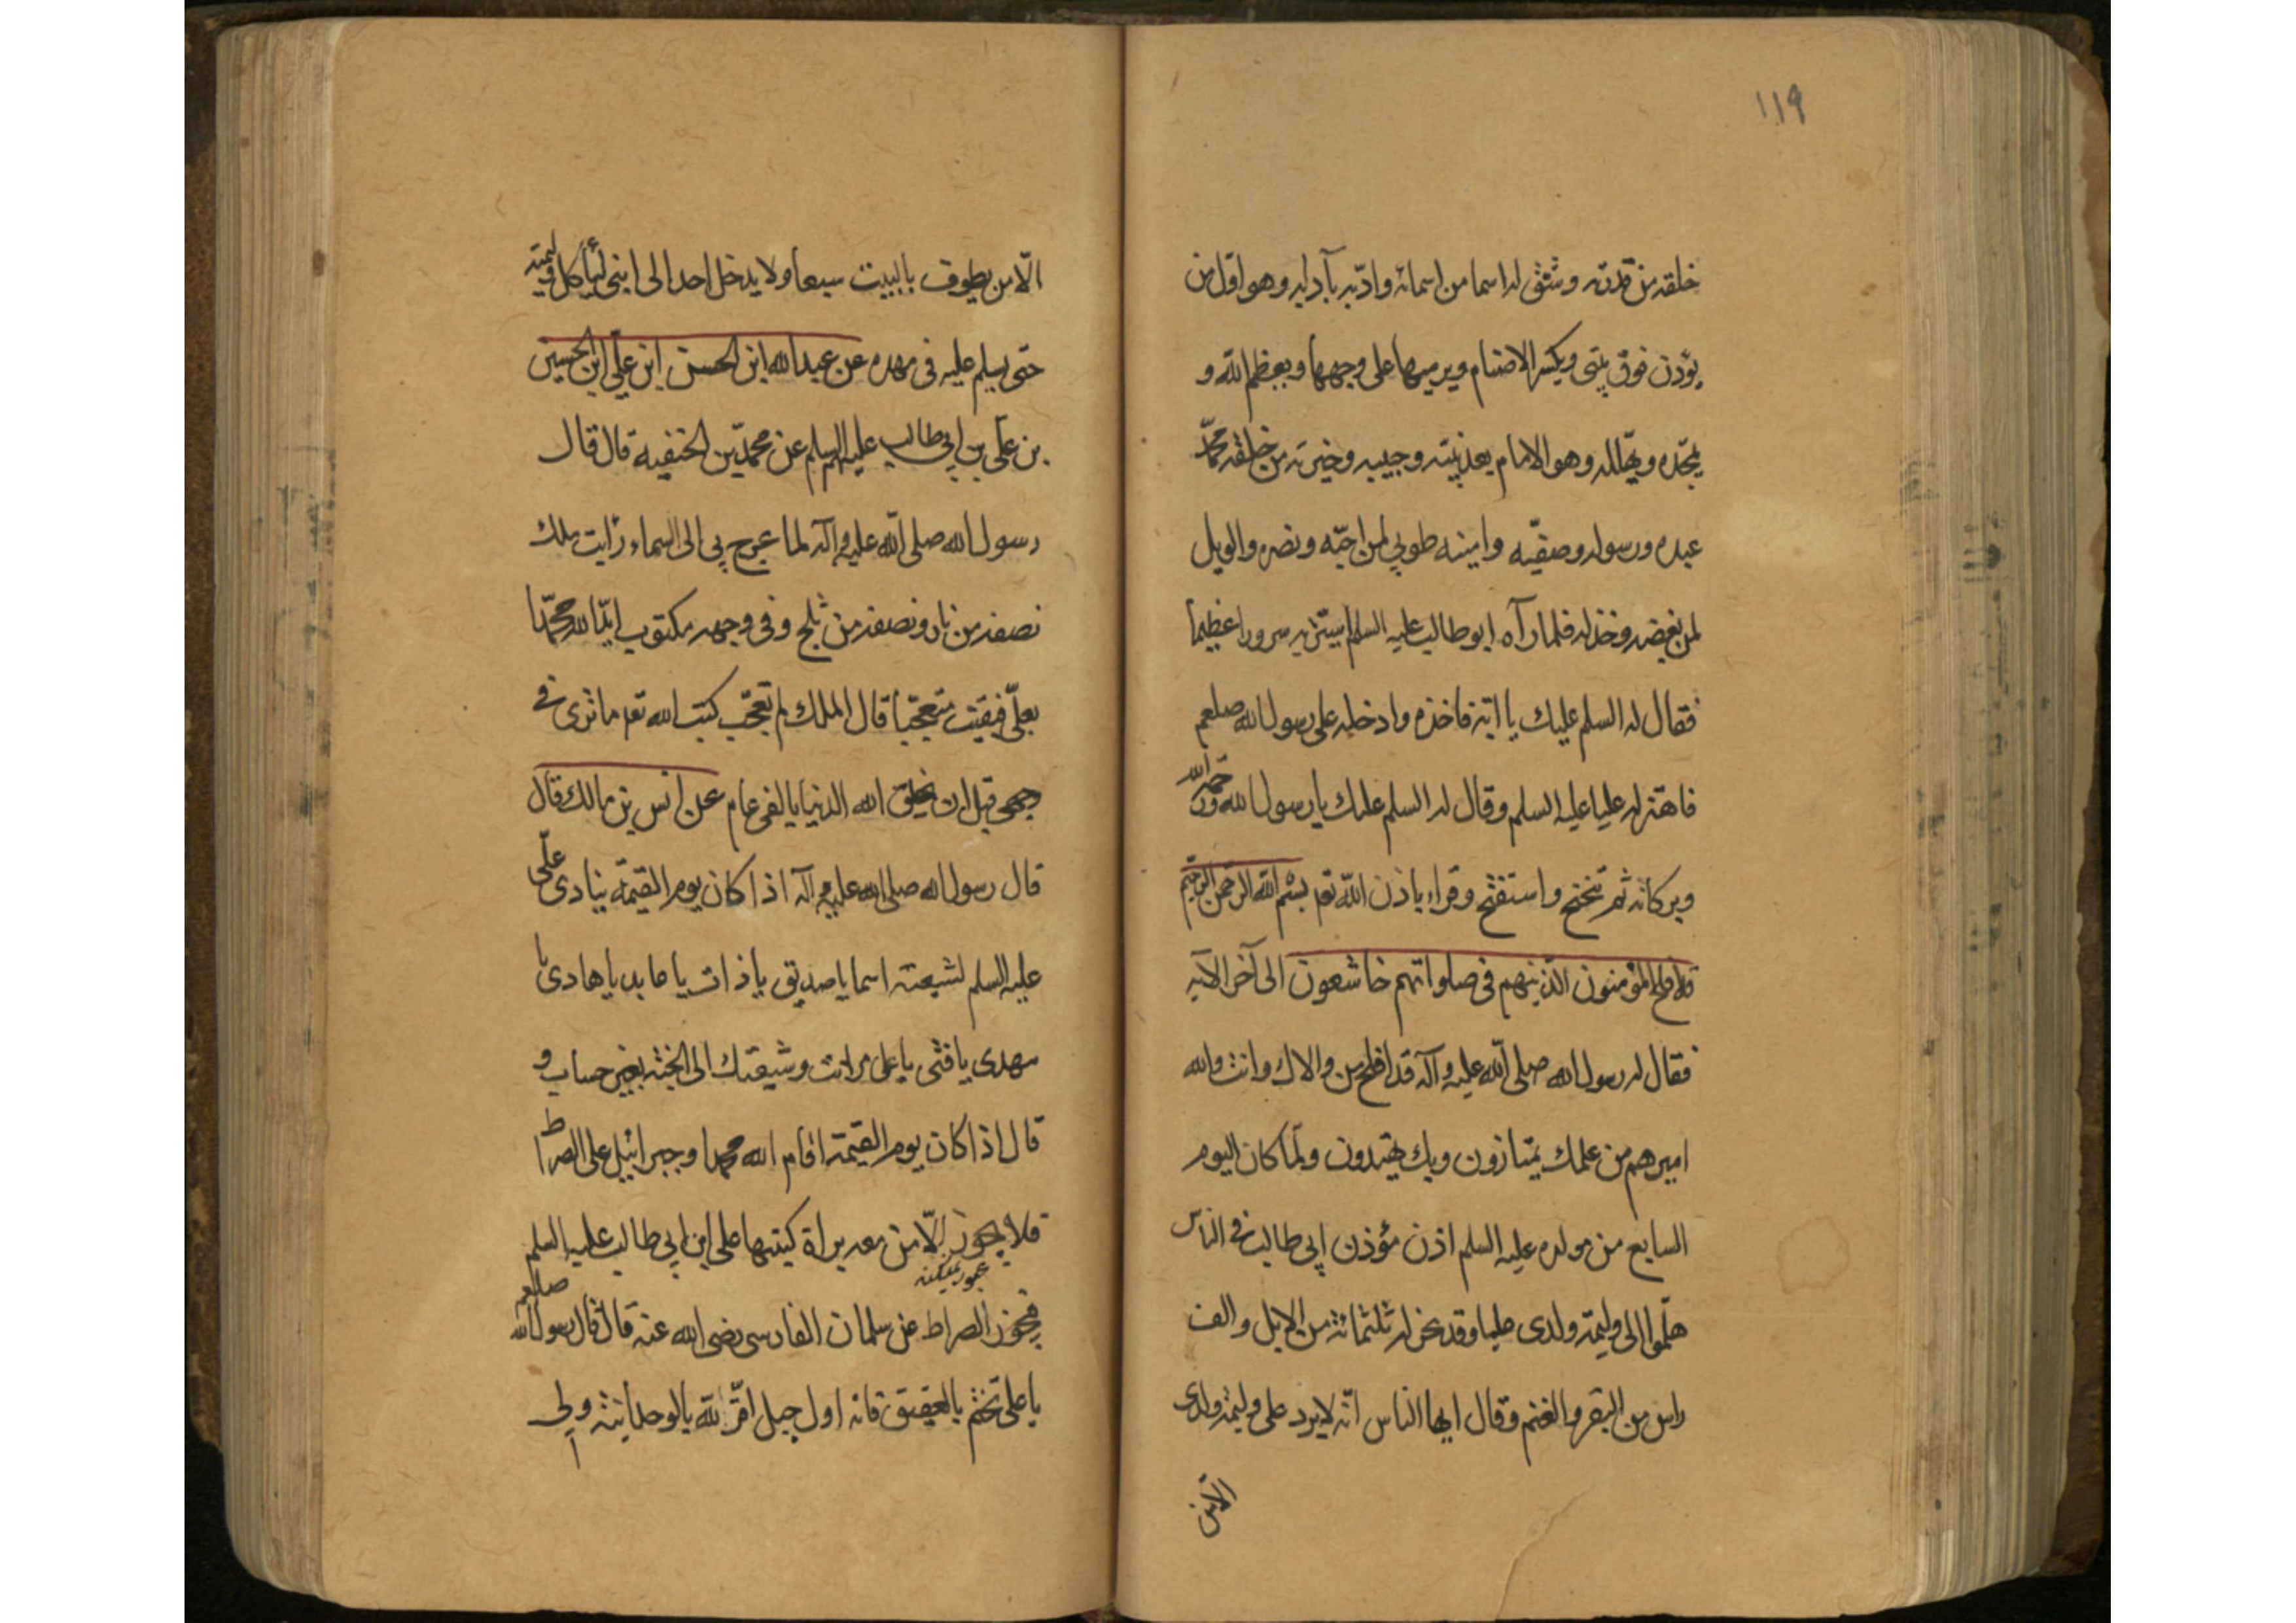 ١١٩
خلقه من قدرته وشقق له اسما من اسمائه وادّبه بآدابه وهو اوّل من
يؤذن فوق بيتى ويكسر الاصنام ويرميها على وجهها ويعظم الله و
يمجّده ويهلله وهو الامام بعد نبيّه وحبيبه وخيرته من خلقه محمّد
عبده ورسوله وصفيّه وامينه طوبى لمن احبّه ونصره والويل
لمن بغضه وخذله فلما رآه ابو طالب عليه السلم استرّ به سرورا عظيما
فقال له السلم عليك يا ابة فاخذه وادخله على رسول الله صلعم
فاهتز له عليا عليه السلم وقال له السلم عليك يا رسول الله ورحمة الله
وبركاته ثم تنحنح واستفتح وقراء باذن الله تعم بسم الله الرحمن الرحيم
قد افلح المؤمنون الذينهم فى صلواتهم خاشعون الى آخر الآية
فقال له رسول الله صلى الله عليه وآله قد افلح من والاك وانت والله
اميرهم من علمك يمتازون وبك يهتدون ولمّا كان اليوم
السابع من مولده عليه السلم اذن مؤذن ابى طالب فى الناس
هلّموا الى وليمة ولدى عليا وقد نحر له ثلثمائة من الابل والف
راس من البقر والغنم وقال ايها الناس انّه لا يرد على وليمة ولدى
الّا من يطوف بالبيت سبعا ولا يدخل احد الى ابنى ليأكل وليمته
حتى يسلم عليه فى مهده عن عبد الله ابن الحسن ابن علىّ ابن الحسين
بن على بن ابى طالب عليهم السلم عن محمّد بن الحنفية قال قال
رسول الله صلى الله عليه وآله لما عرج بى الى السماء رايت ملك
نصفه من نار ونصفه من ثلج وفى وجهه مكتوب ايّد الله محمّدا
بعلىّ فبقيت متعجّبا قال الملك لم تعجّب كتب الله تعم ما ترى فى
وجهى قبل ان يخلق الله الدنيا بالفى عام عن انس بن مالك قال
قال رسول الله صلى الله عليه وآله اذا كان يوم القيمة ينادى علىّ
عليه السلم لشيعته اسما يا صديق يا ذات يا عابد يا هادى يا
مهدى يا فتى يا على مر انت وشيعتك الى الجنّة بغير حساب و
قال اذا كان يوم القيمة اقام الله محمدا وجبرائيل على الصراط
فلا يجوز الّا من معه براة كتبها على ابن ابى طالب عليه السلم
فيجوز الصراط عن سلمان الفارسى رضى الله عنه قال قال رسول الله صلعم
يا على تختّم بالعقيق فانه اول جبل اقرّ لله بالوحدانيّة ولى